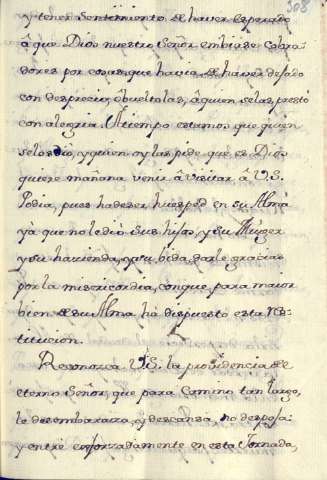 308
y tener sentimiento de haver esperado
â que Dios nuestro Señor embiase cobra-
dores por cosas, que havia de haver dejado
con desprecio, ô bueltolas, â quien se las prestó
con alegria. A tiempo estamos que quien
se los dió, y quien oy las pide que es Dios
quiere mañana venir â visitar â V.S.
Podia, pues ha de ser huesped en su Alma
yà que no le dió sus hijos, y su Muger
y su hacienda, y su bida, darle gracias
por la misericordia, con que para maior
bien de su Alma ha dispuesto esta res-
titucion.
Reconosca V.S. la providencia de
eterno Señor, que para camino tan largo,
le desembaraza, y descansa, no despoja,
y entre esforzadamente en esta Jornada,